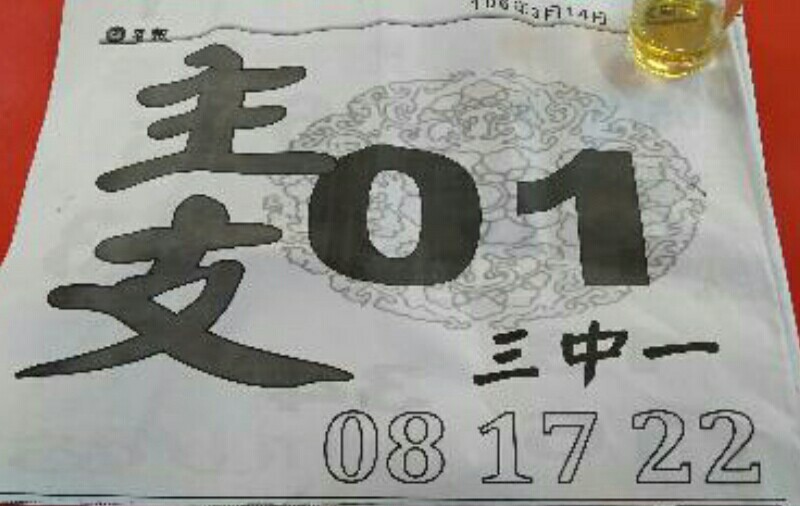 106年3月14日
主支
01
三中一
08 17 22